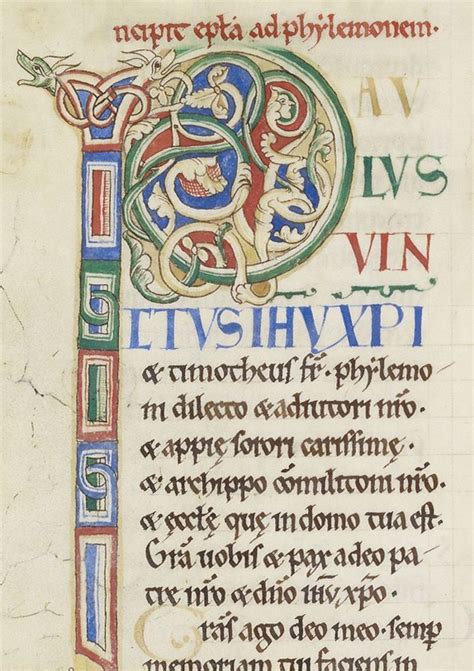 ncipit epła ad phẏlemonem.
P AV
LVS
VIN
CTVS IHV XPI
& timotheus fr̄. phẏlemo
ni dilecto & adiutori nr̄o.
& appię sorori carissimę
& archippo cōmilitoni nr̄o.
& ęccłę quę in domo tua est.
Gr̄a uobis & pax a deo pa
tre nr̄o & dn̄o ihū xp̄o.
Gr̄as ago deo meo. semp̄
memoriam tui faciens in